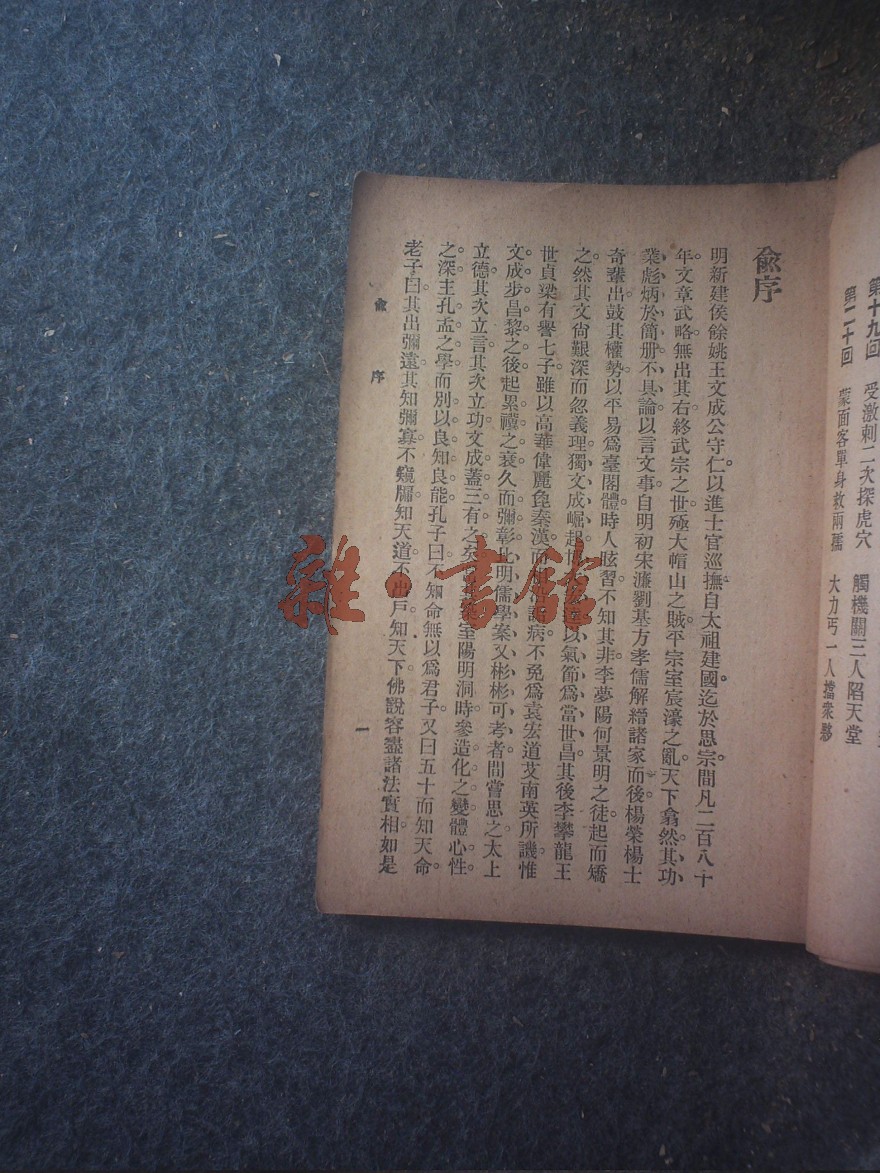 第十九回　受激刺二次探虎穴　觸機關三人陷天堂
第二十回　蒙面客單身救兩孺　大力丐一人擋衆夥
俞序
明新建侯餘姚王文成公守仁以進士官巡撫自太祖建國。迄於思宗間凡二百八十
年。文章武略無出其右終武宗之世殛大帽山之賊。平宗室宸濠之亂。天下翕然其功
業彪炳於簡册不具論以言文事自明初宋濂劉基方孝儒解縉諸家而後楊榮楊士
奇輩出鼓其權勢以平易爲臺閣體時人眩習不知其非李夢陽何景明之徒起而矯
之然其文尙艱深而忽義理獨文成崛起以氣節爲當世昌。其後李攀龍王
世貞梁有譽七子雖以高華偉麗㒵秦漢病不免爲袁宏道艾南英所譏惟
文成步昌黎之後起累禩之衰久而彌彰比明儒學案又彬彬可考者間嘗思之太上
立德。其次立言。其次立功。文成蓋三有之矣室陽明洞時參造化之變體心性
之深主孔孟之學而別以良知良能。孔子曰不知命無以爲君子。又曰五十而知天命
老子曰其出彌遠。其知彌寡。不窺牖知天道不出戶知天下佛說容盡諸法實相。如是
俞序
一
雜·書館